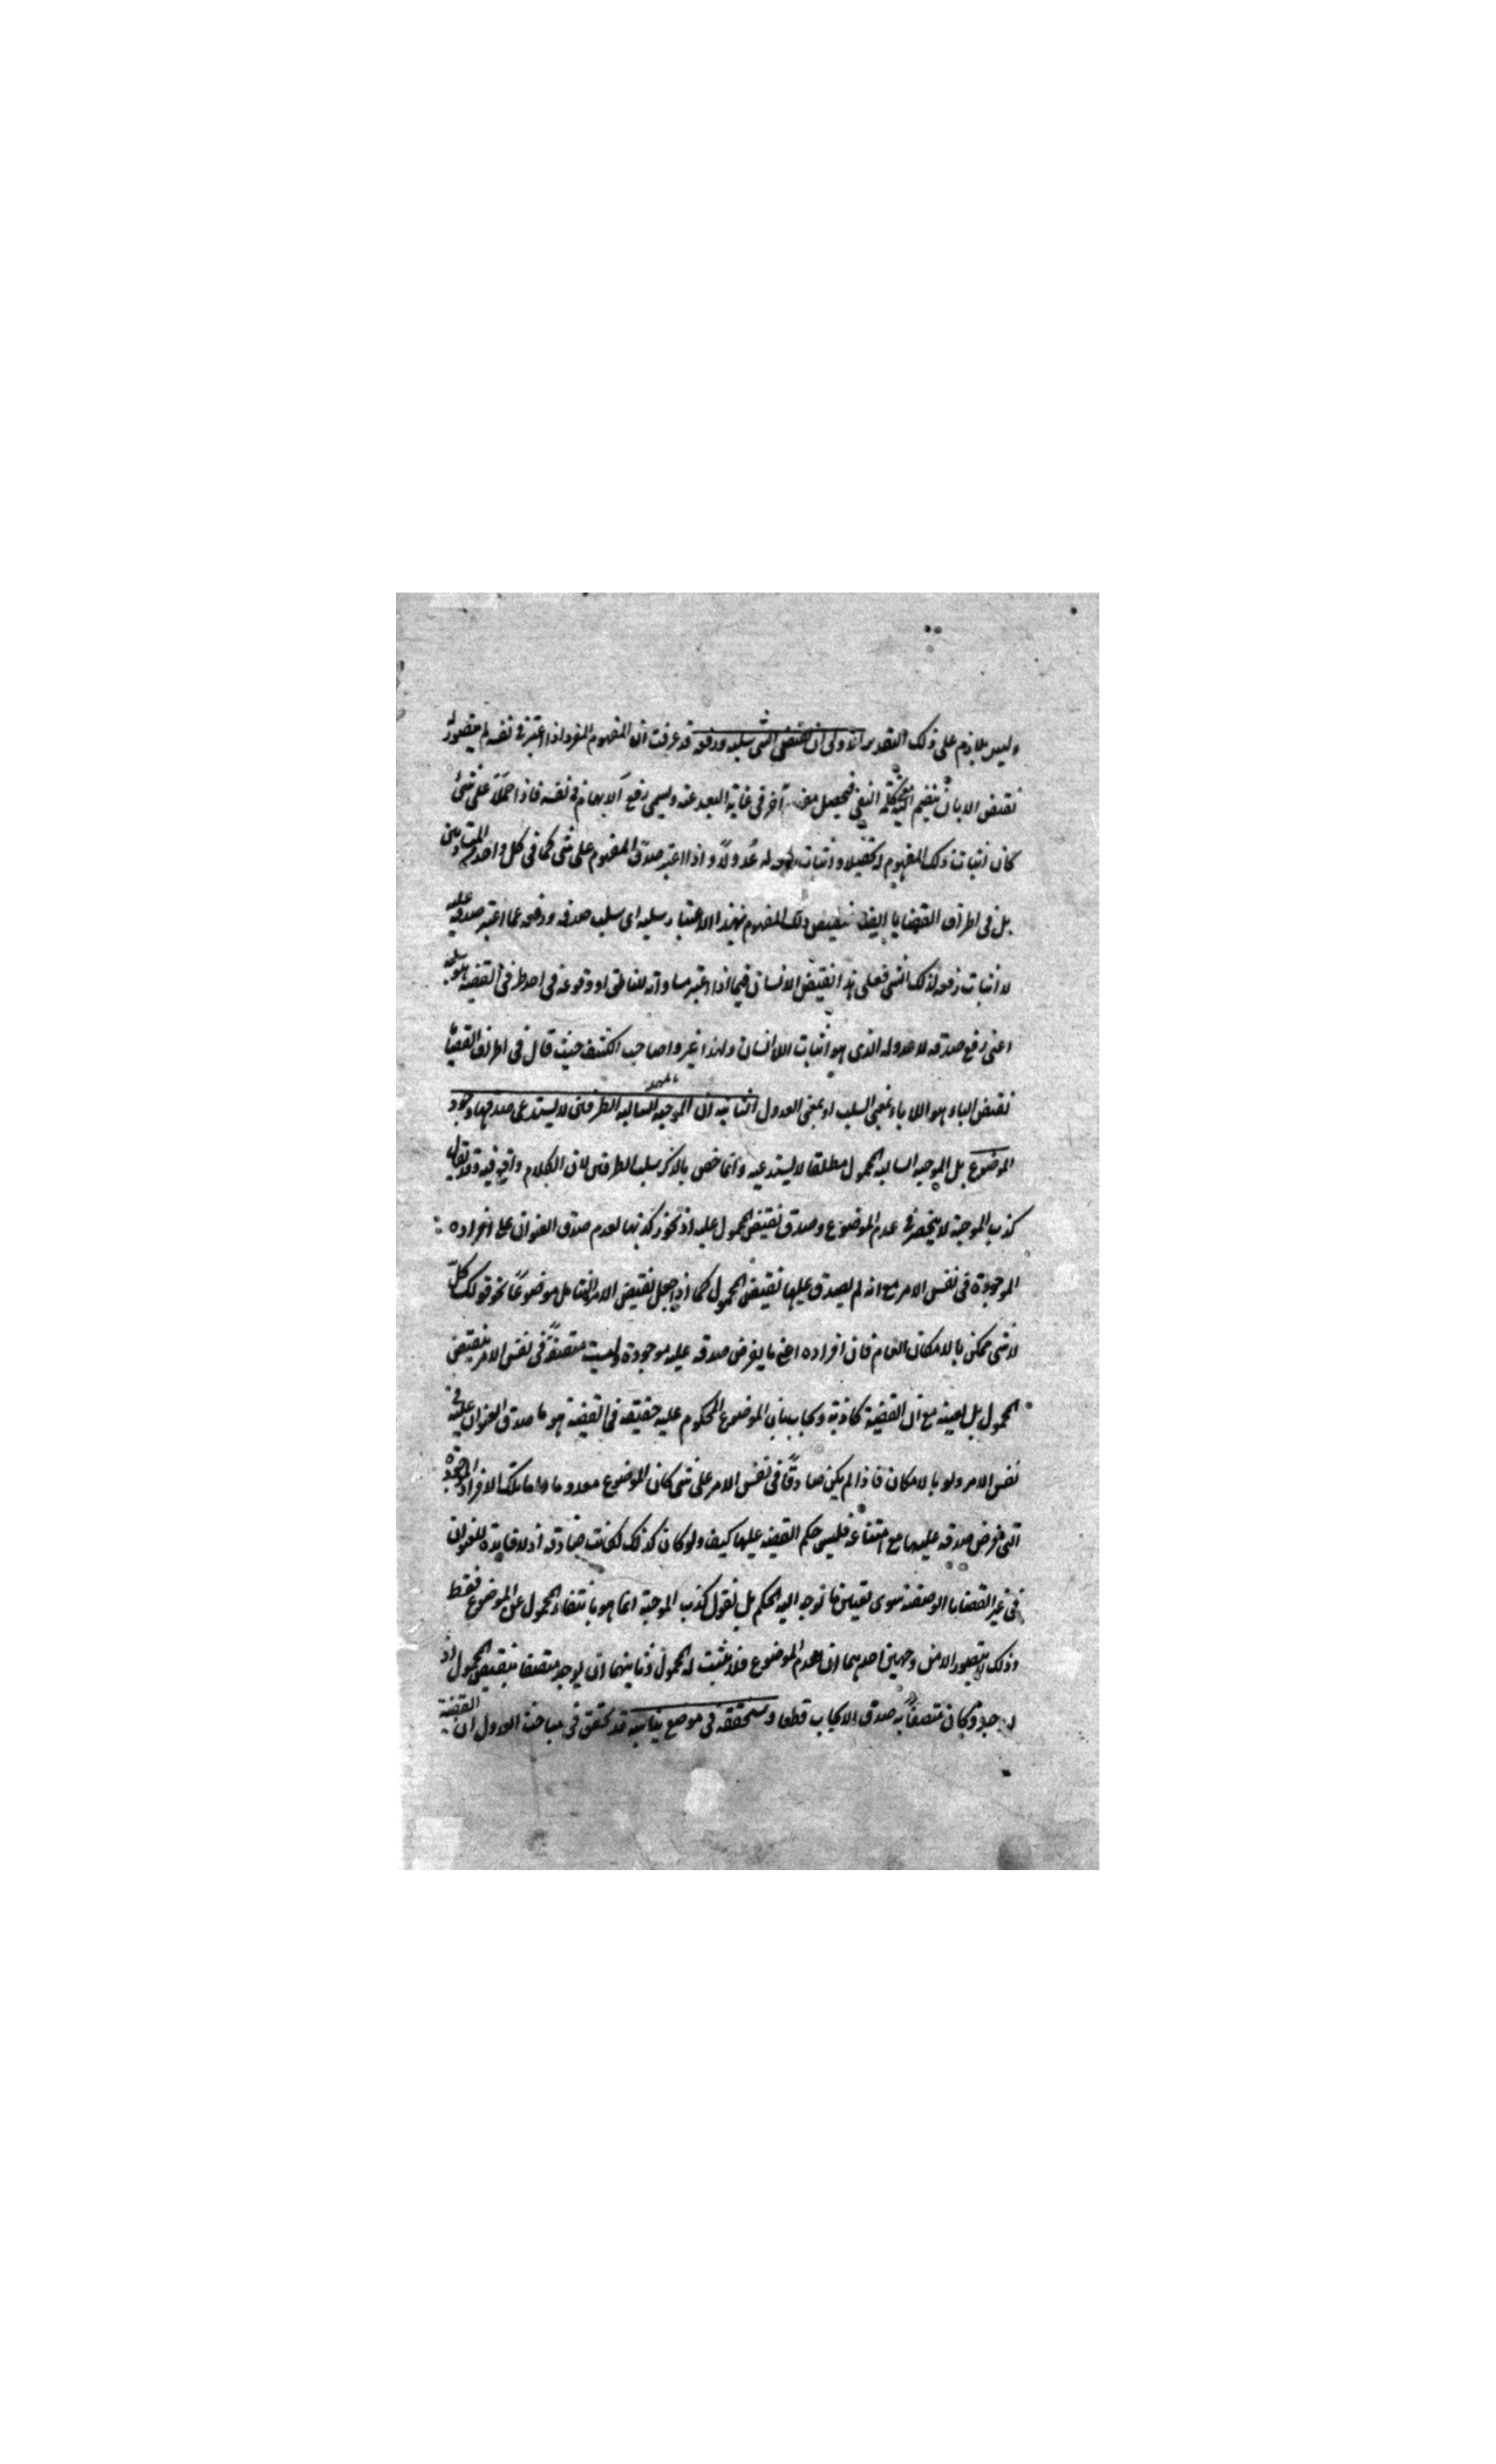 وليس بلازم على ذلك التقدير الاولى ان نقيض الشئ سلبه ورفعه قد عرفت ان المفهوم المفرد اذا اعتبر فى نفسه لم يتصور له
نقيض الا بان ينضم اليه كلمة النفى فيحصل مفهوم آخر فى غاية البعد عنه ويسمى رفع الابهام فى نفسه فاذا حملا على شئ
كان اثبات ذلك المفهوم له تحصيلا واثبات رفعه له عدولا واذا اعتبر صدق المفهوم على شئ كما فى كل واحد من المتساويين
بل فى اطراف القضايا ايضا فنقيض ذلك المفهوم بهذا الاعتبار سلبه اى سلب صدقه ورفعه عما اعتبر صدقه عليه
لا اثبات رفعه لذلك الشئ فعلى هذا نقيض الانسان فيما اذا اعتبر مساواته للناطق او وقوعه فى احد طرفى القضية هو سلبه
اعنى رفع صدقه لا عدوله الذى هو اثبات اللاانسان ولهذا صاحب الكشف حيث قال فى اطراف القضايا
نقيض الباء هو اللاباء بمعنى السلب او بمعنى العدول الثانية ان الموجبة السالبة الطرفين لا يستدعى صدقها وجود
الموضوع بل الموجبة السالبة المحمول مطلقا لا يستدعيه وانما خص بالذكر سلب الطرفين لان الكلام واقع فيه وقد يقال
كذب الموجبة لا ينحصر فى عدم الموضوع وصدق نقيض المحمول عليه اذ يجوز كذبها لعدم صدق العنوان على افراده
الموجودة فى نفس الامر مع انه لم يصدق عليها نقيض المحمول كما اذا جعل نقيض الامر الشامل موضوعا نحو قولك كل
لا شئ ممكن بالامكان العام فان افراده اعنى ما يفرض صدقه عليه موجودة وليست متصفة فى نفس الامر بنقيض
المحمول بل بعينه مع ان القضية كاذبة ويجاب بان الموضوع المحكوم عليه حقيقة فى القضية هو ما صدق العنوان عليه فى
نفس الامر ولو بالامكان فاذا لم يكن صادقا فى نفس الامر على شئ كان الموضوع معدوما واما تلك الافراد الموجودة
التى فرض صدقه عليها مع امتناعه فليس حكم القضية عليها كيف ولو كان كذلك لكانت صادقة اذ لا فايدة للعنوان
فى غير القضايا الوصفية سوى تعيين ما توجه اليه الحكم بل نقول كذب الموجبة انما هو بانتفاء المحمول عن الموضوع فقط
وذلك لا يتصور الا من وجهين احدهما ان يعدم الموضوع فلا يثبت له المحمول وثانيهما ان يوجد متصفا بنقيض المحمول اذ
لو وجد وكان متصفا به صدق الايجاب قطعا وستحققه فى موضع يناسبه قد تحقق فى مباحث العدول ان القضية